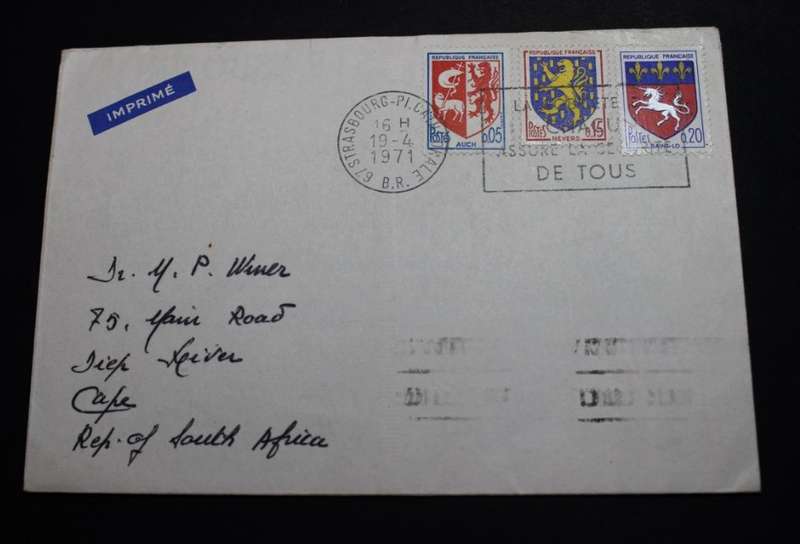 IMPRIMÉ
REPUBLIQUE FRANÇAISE
POSTES 0,05
AUCH
REPUBLIQUE FRANÇAISE
POSTES 0,15
NEVERS
REPUBLIQUE FRANÇAISE
POSTES 0,20
SAINT-LO
67 STRASBOURG-PL.
16 H
19-4
1971
B.R.
LA
ASSURE LA
DE TOUS
Dr. M. P. Winer
75, Main Road
Diep River
Cape
Rep. of South Africa